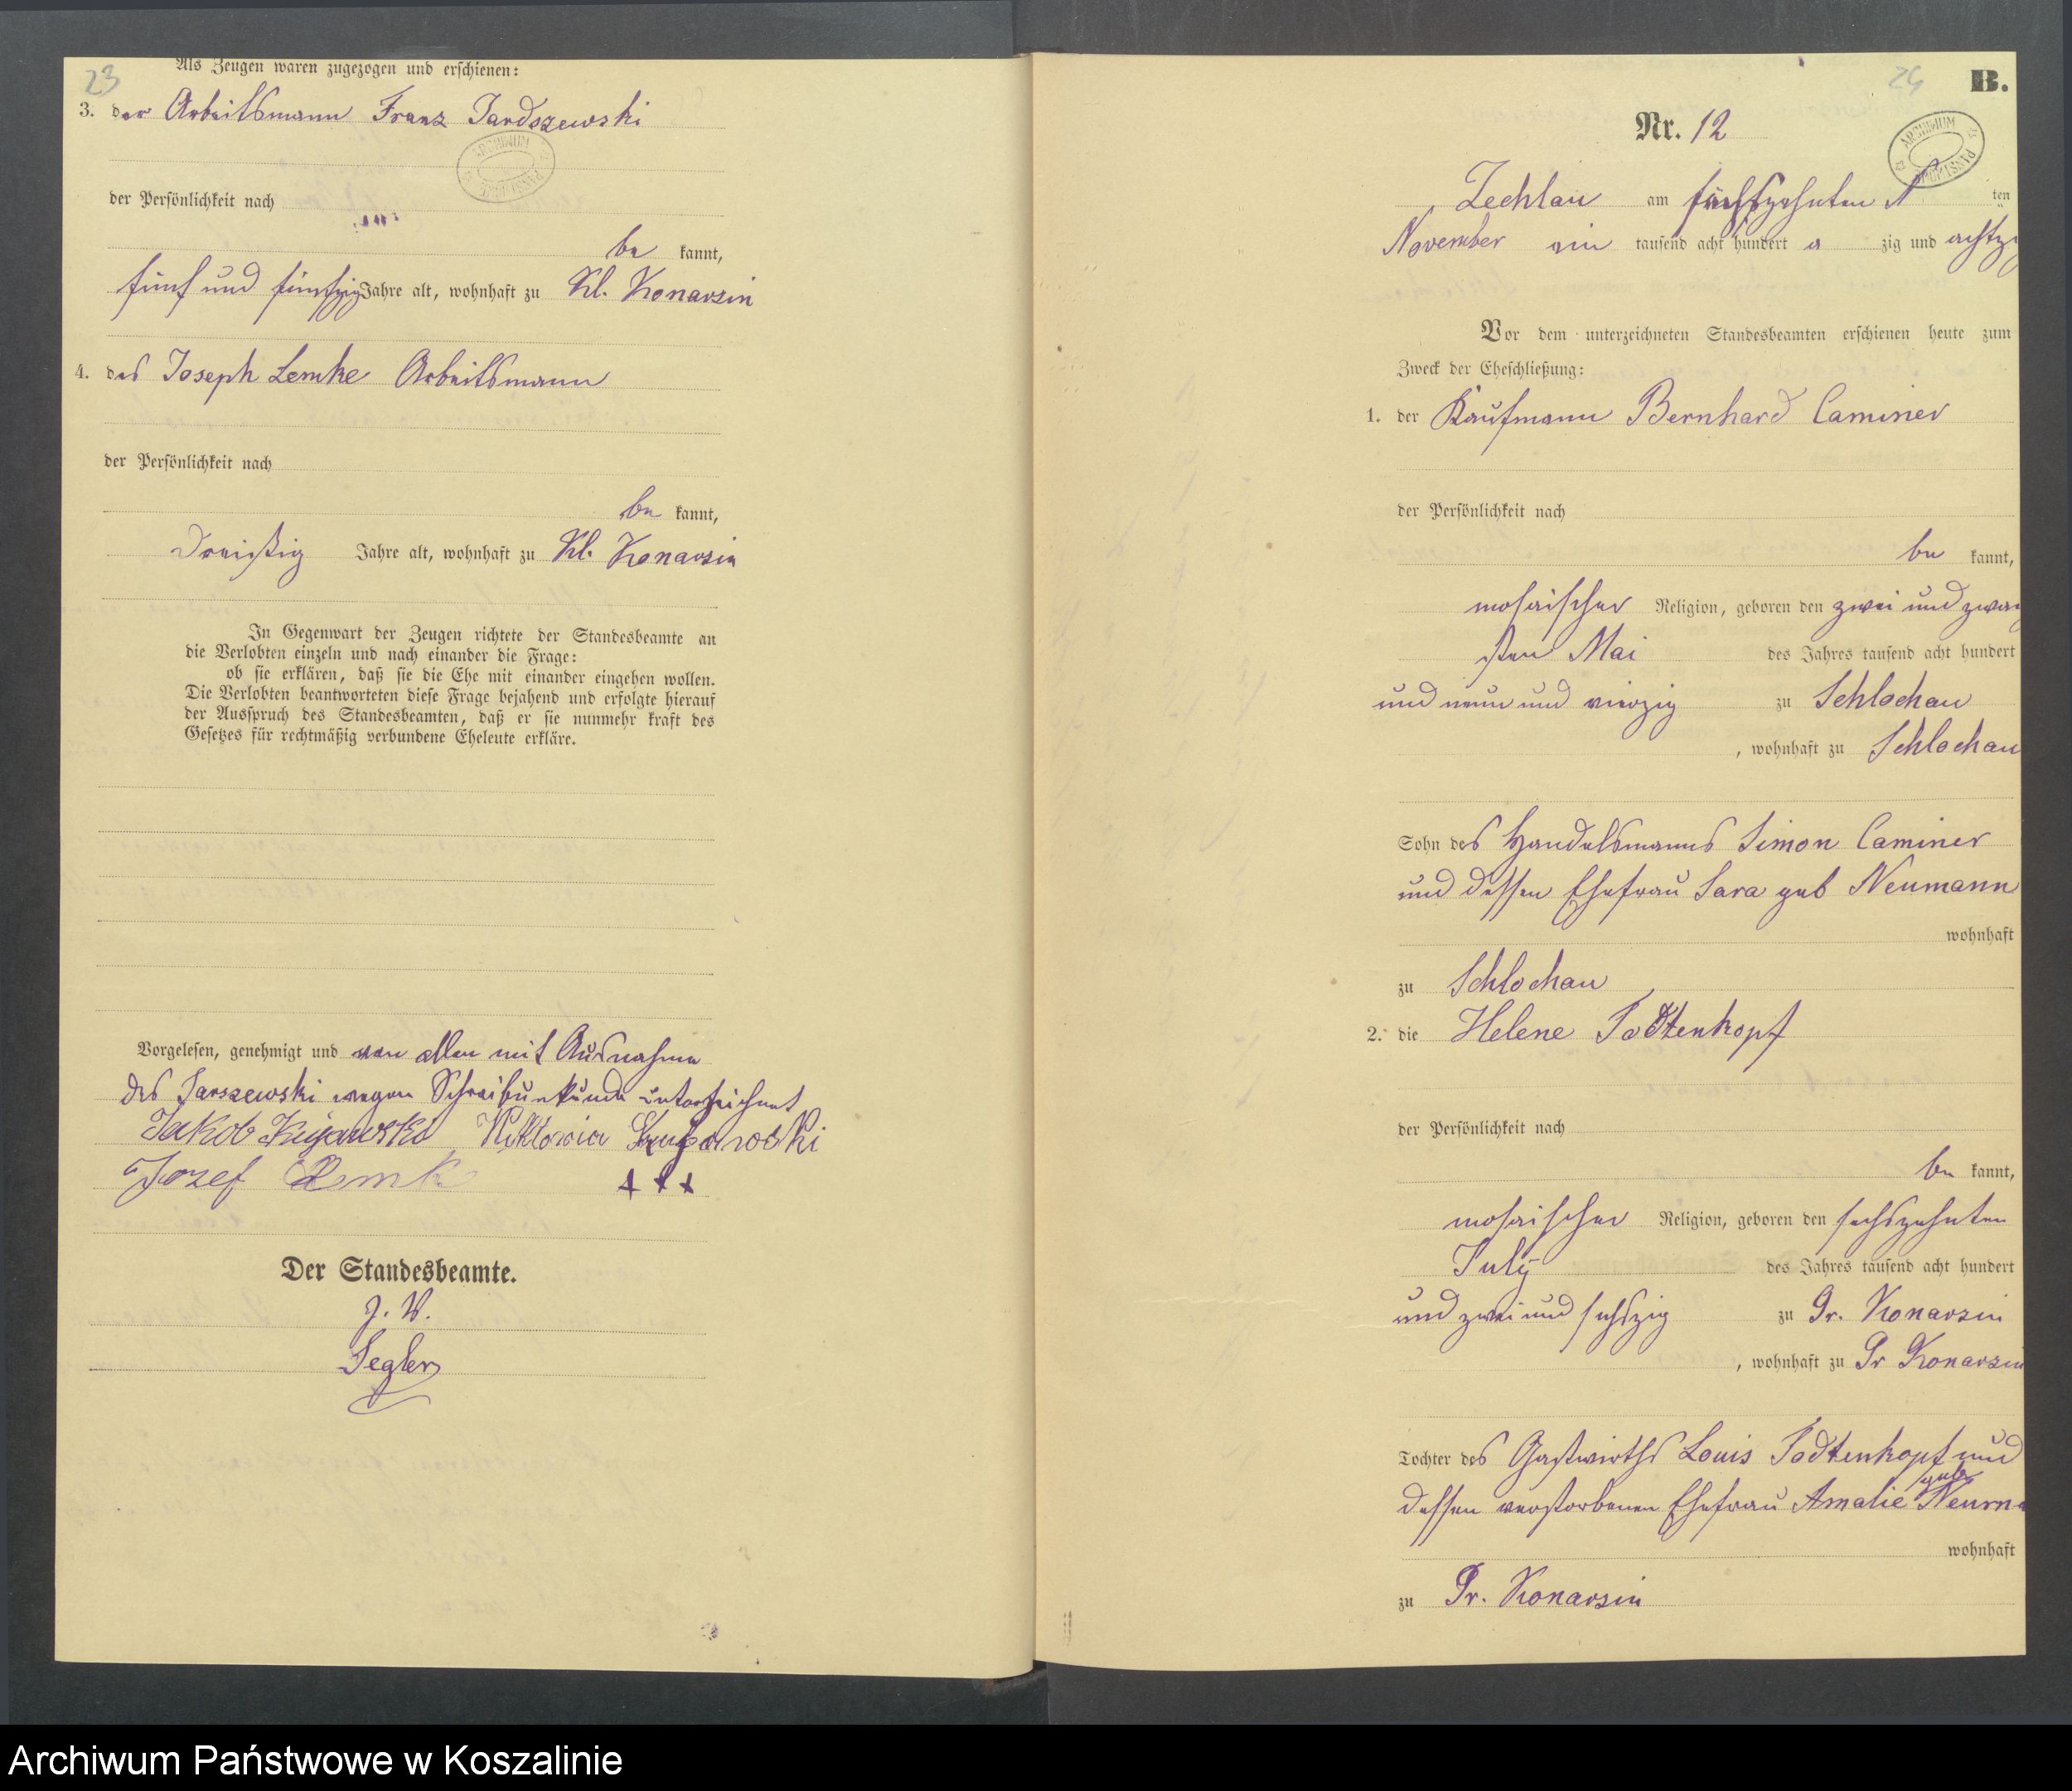 23
Als Zeugen waren zugezogen und erschienen:
3. der Arbeitsmann Franz Jardszewski
der Persönlichkeit nach
be kannt,
fünf und fünfzig Jahre alt, wohnhaft zu Kl. Konarzin
4. des Joseph Lemke Arbeitsmann
der Persönlichkeit nach
be kannt,
dreißig Jahre alt, wohnhaft zu Kl. Konarzin
In Gegenwart der Zeugen richtete der Standesbeamte an
die Verlobten einzeln und nach einander die Frage:
ob sie erklären, daß sie die Ehe mit einander eingehen wollen.
Die Verlobten beantworteten diese Frage bejahend und erfolgte hierauf
der Ausspruch des Standesbeamten, daß er sie nunmehr kraft des
Gesetzes für rechtmäßig verbundene Eheleute erkläre.
Vorgelesen, genehmigt und von allen mit Ausnahme
des Jarszewski wegen Schreibunkunde unterzeichnet
Jakob Kujawski Wiktowia
Jozef Lemk +++
Der Standesbeamte.
J. V.
Segler
24
B.
ARCHIWUM
Nr. 12
Zechlau am fünfzehnten ten
November ein tausend acht hundert zig und achtzi
Vor dem unterzeichneten Standesbeamten erschienen heute zum
Zweck der Eheschließung:
1. der Kaufmann Bernhard Caminer
der Persönlichkeit nach
be kannt,
mosaischer Religion, geboren den zwei und zwan
sten Mai des Jahres tausend acht hundert
und neun und vierzig zu Schlochau
, wohnhaft zu Schlochau
Sohn des Handelsmanns Simon Caminer
und dessen Ehefrau Sara geb Neumann
wohnhaft
zu Schlochau
2. die Helene Todtenkopf
der Persönlichkeit nach
be kannt,
mosaischer Religion, geboren den sechszehnten
July des Jahres tausend acht hundert
und zwei und sechszig zu Gr. Konarzin
, wohnhaft zu Gr Konarzin
Tochter des Gastwirths Louis Todtenkopf und
dessen verstorbenen Ehefrau Amalie geb Neuma
wohnhaft
zu Gr. Konarzin
Archiwum Państwowe w Koszalinie